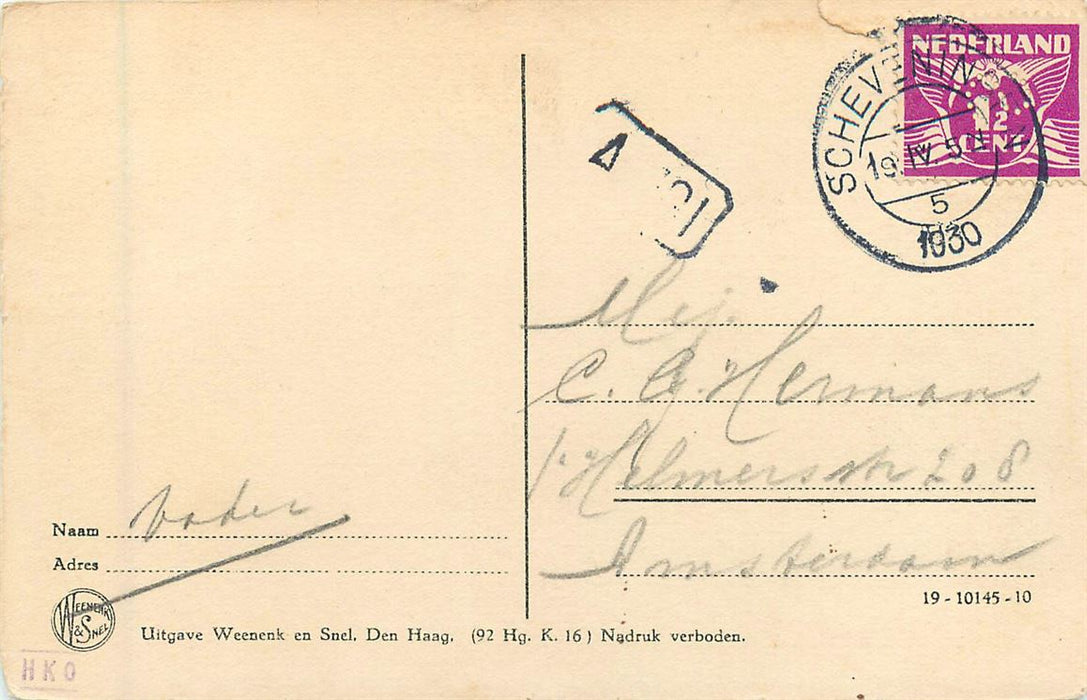 NEDERLAND
1½
CENT
SCHEVENIN
19.IV.5
5
1930
A
Mej.
C. G. Hermans
1e Helmersstr 208
Amsterdam
Naam Vader
Adres
19-10145-10
WEENENK
& SNEL
Uitgave Weenenk en Snel, Den Haag, (92 Hg. K. 16) Nadruk verboden.
HKO